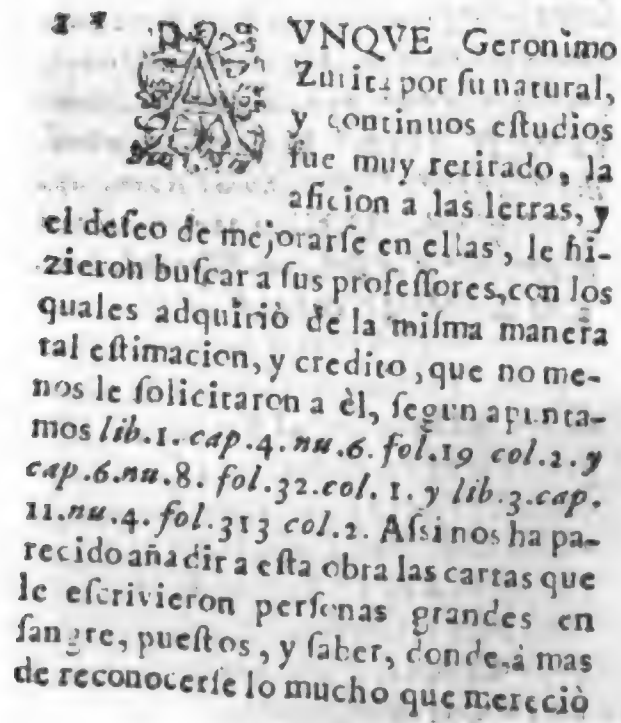 AVNQVE Geronimo
Zurita por ſu natural,
y continuos eſtudios
fue muy retirado, la
aficion a las letras, y
el deſeo de mejorarſe en ellas, le hi-
zieron buſcar a ſus profeſſores, con los
quales adquiriò de la miſma manera
tal eſtimacion, y credito, que no me-
nos le ſolicitaron a èl, ſegun apunta-
mos lib.1.cap.4.nu.6.fol.19 col.2.y
cap.6.nu.8. fol.32.col. 1. y lib.3.cap.
11.nu.4.fol.313 col.2. Aſsi nos ha pa-
recido añadir a eſta obra las cartas que
le eſcrivieron perſonas grandes en
ſangre, pueſtos, y ſaber, donde, à mas
de reconocerſe lo mucho que mereciò